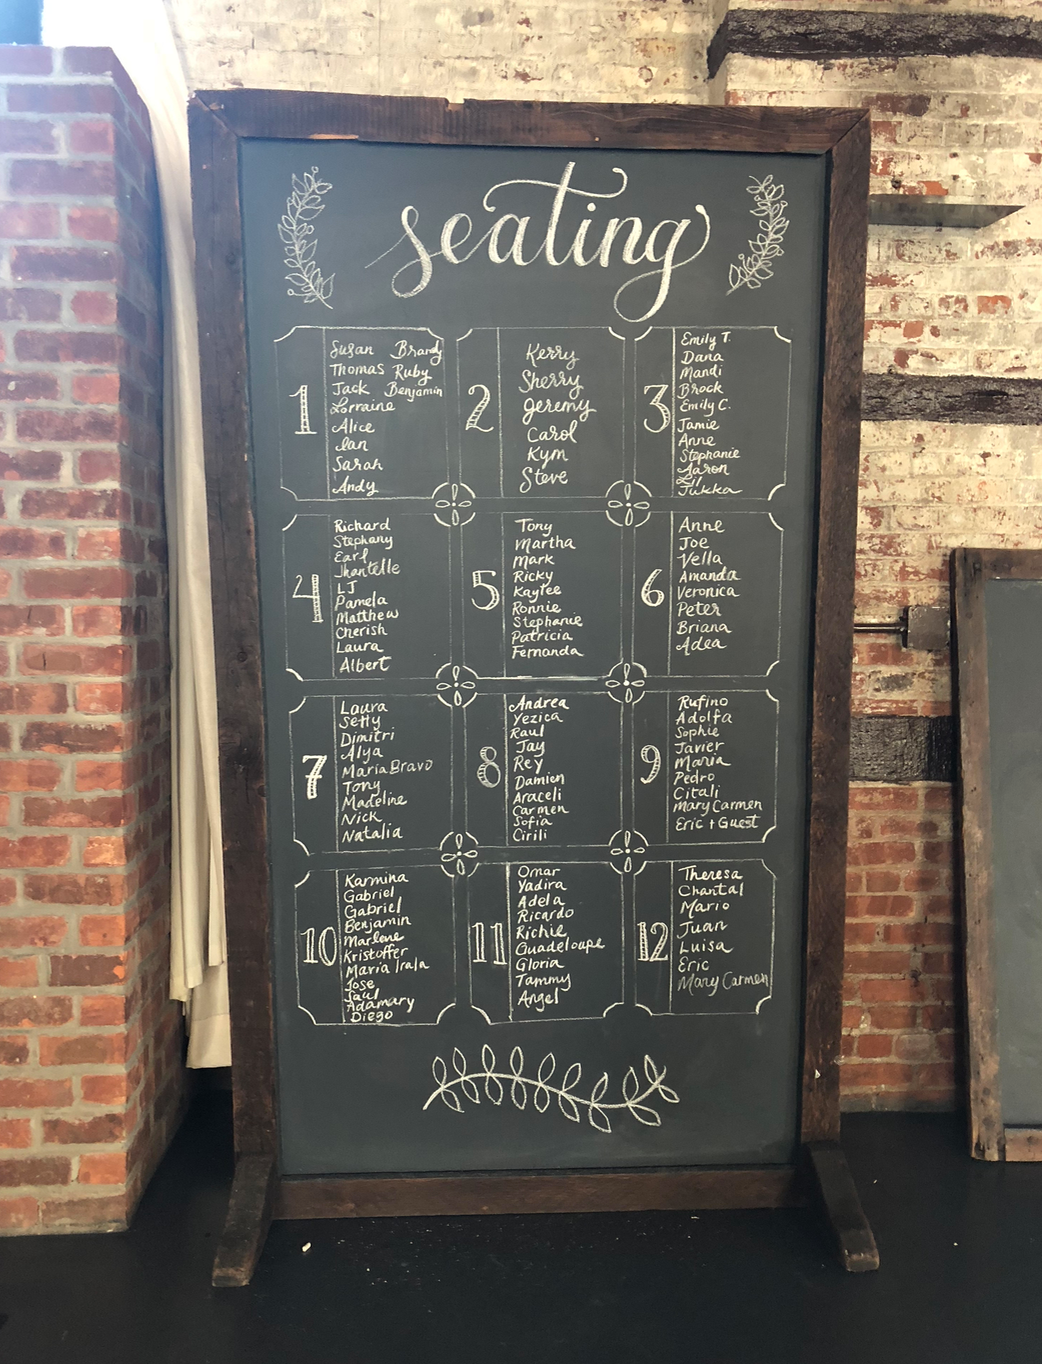 seating
1
Susan Brandy
Thomas Ruby
Jack Benjamin
Lorraine
Alice
Ian
Sarah
Andy
2
Kerry
Sherry
Jeremy
Carol
Kym
Steve
3
Emily T.
Dana
Mandi
Brock
Emily C.
Jamie
Anne
Stephanie
Aaron
Lil
Jukka
4
Richard
Stephany
Earl
Jhantelle
LJ
Pamela
Matthew
Cherish
Laura
Albert
5
Tony
Martha
Mark
Ricky
Kaylee
Ronnie
Stephanie
Patricia
Fernanda
6
Anne
Joe
Vella
Amanda
Veronica
Peter
Briana
Adea
7
Laura
Setty
Dimitri
Alya
Maria Bravo
Tony
Madeline
Nick
Natalia
8
Andrea
Yezica
Raul
Jay
Rey
Damien
Araceli
Carmen
Sofia
Cirili
9
Rufino
Adolfa
Sophie
Javier
Maria
Pedro
Citali
Mary Carmen
Eric + Guest
10
Karmina
Gabriel
Gabriel
Benjamin
Marlene
Kristoffer
Maria Irala
Jose
Saul
Adamary
Diego
11
Omar
Yadira
Adela
Ricardo
Richie
Guadeloupe
Gloria
Tammy
Angel
12
Theresa
Chantal
Mario
Juan
Luisa
Eric
Mary Carmen